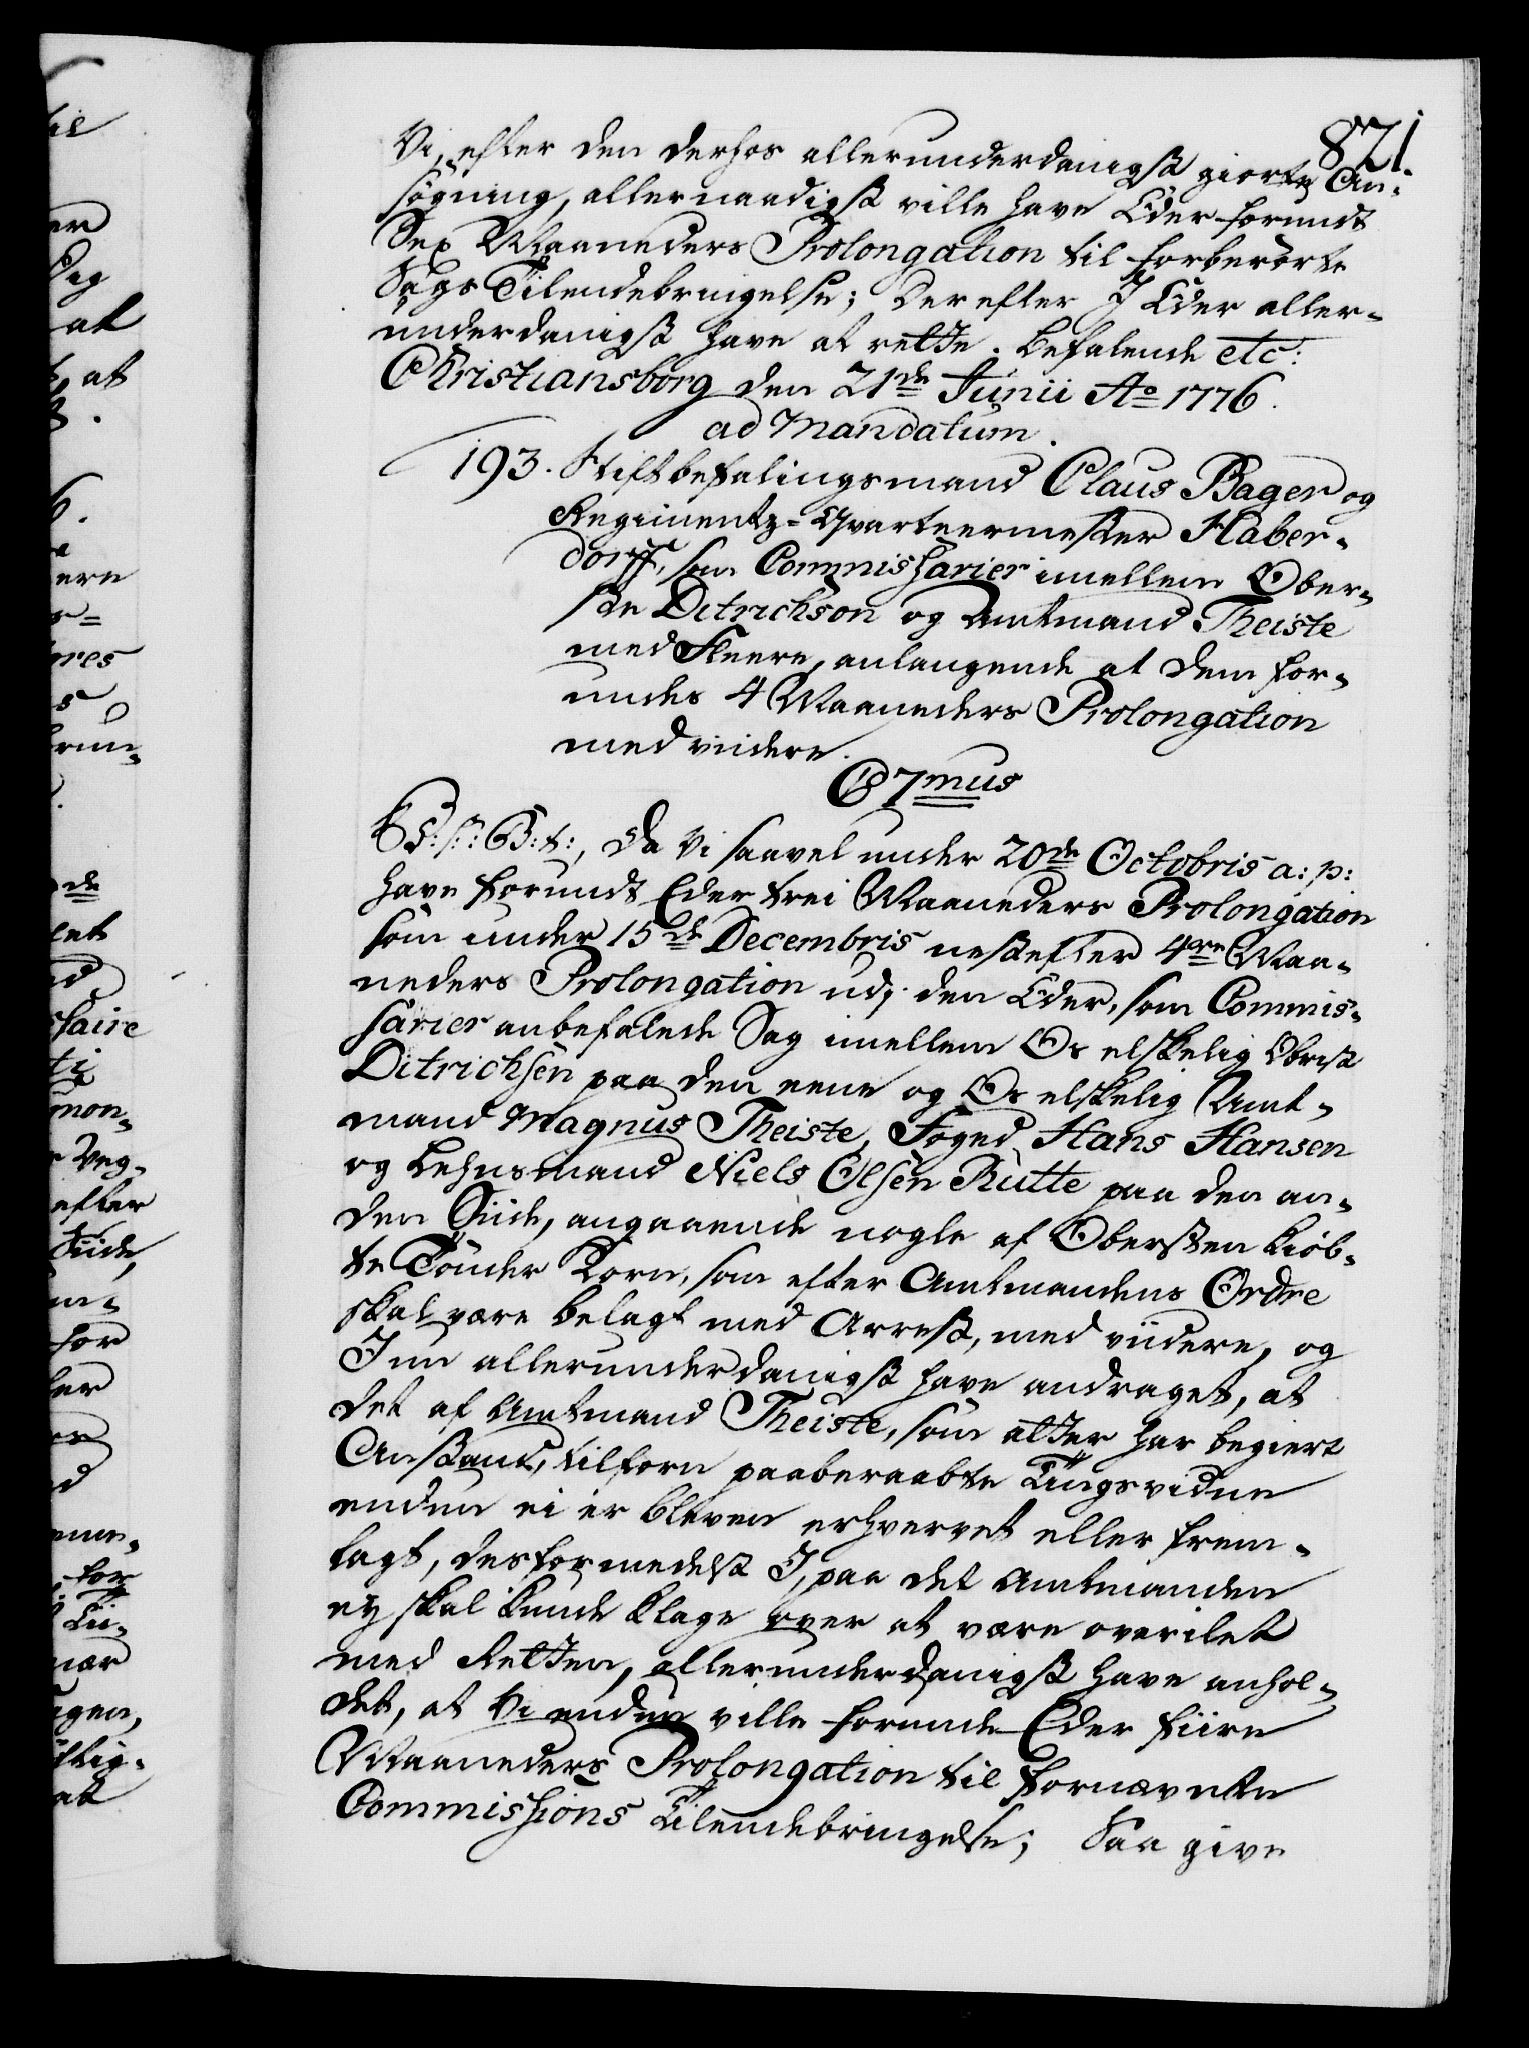 821
Vi, efter den derhos allerunderdanigst giorte An-
søgning, allernaadigst ville have Eder forundt
Sex Maaneders Prolongation til forberørte
Sags Tilendebringelse; Derefter I Eder aller-
underdanigst have at rette. Befalende etc:
Christiansborg den 21de Junii Ao 1776.
ad Mandatum.
193. Stiftbefalingsmand Claus Bager og
Regimentz-Qvarteermester Haber-
dorff, som Commissarier imellem Ober-
ste Ditrichson og Amtmand Theiste
med Fleere, anlangende at dem for-
undes 4 Maaneders Prolongation
med viidere.
C 7mus
G: t:, Da Vi saavel under 20de Octobris a: p:
have forundt Eder trei Maaneders Prolongation
som under 15de Decembris nestefter 4re Maa-
neders Prolongation udj den Eder, som Commis-
sarier anbefalede Sag imellem Os elskelig Obrist
Ditrichsen paa den eene og Os elskelig Amt-
mand Magnus Theiste, Foged Hans Hansen
og Lehnsmand Niels Olsen Rutte paa den an-
den Siide, angaaende nogle af Obersten kiøb-
te Tønder Korn, som efter Amtmandens Ordre
skal være belagt med Arrest, med viidere, og
I nu allerunderdanigst have andraget, at
det af Amtmand Theiste, som atter har begiert
Anstand, tilforn paaberaabte Tingsvidne
endnu ei er bleven erhvervet eller frem-
lagt, desformedelst I, paa det Amtmanden
ey skal kunde klage over at være overilet
med Retten, allerunderdanigst have anhol-
det, at Vi endnu ville forunde Eder fiire
Maaneders Prolongation til fornævnte
Commissions Tilendebringelse; Saa give